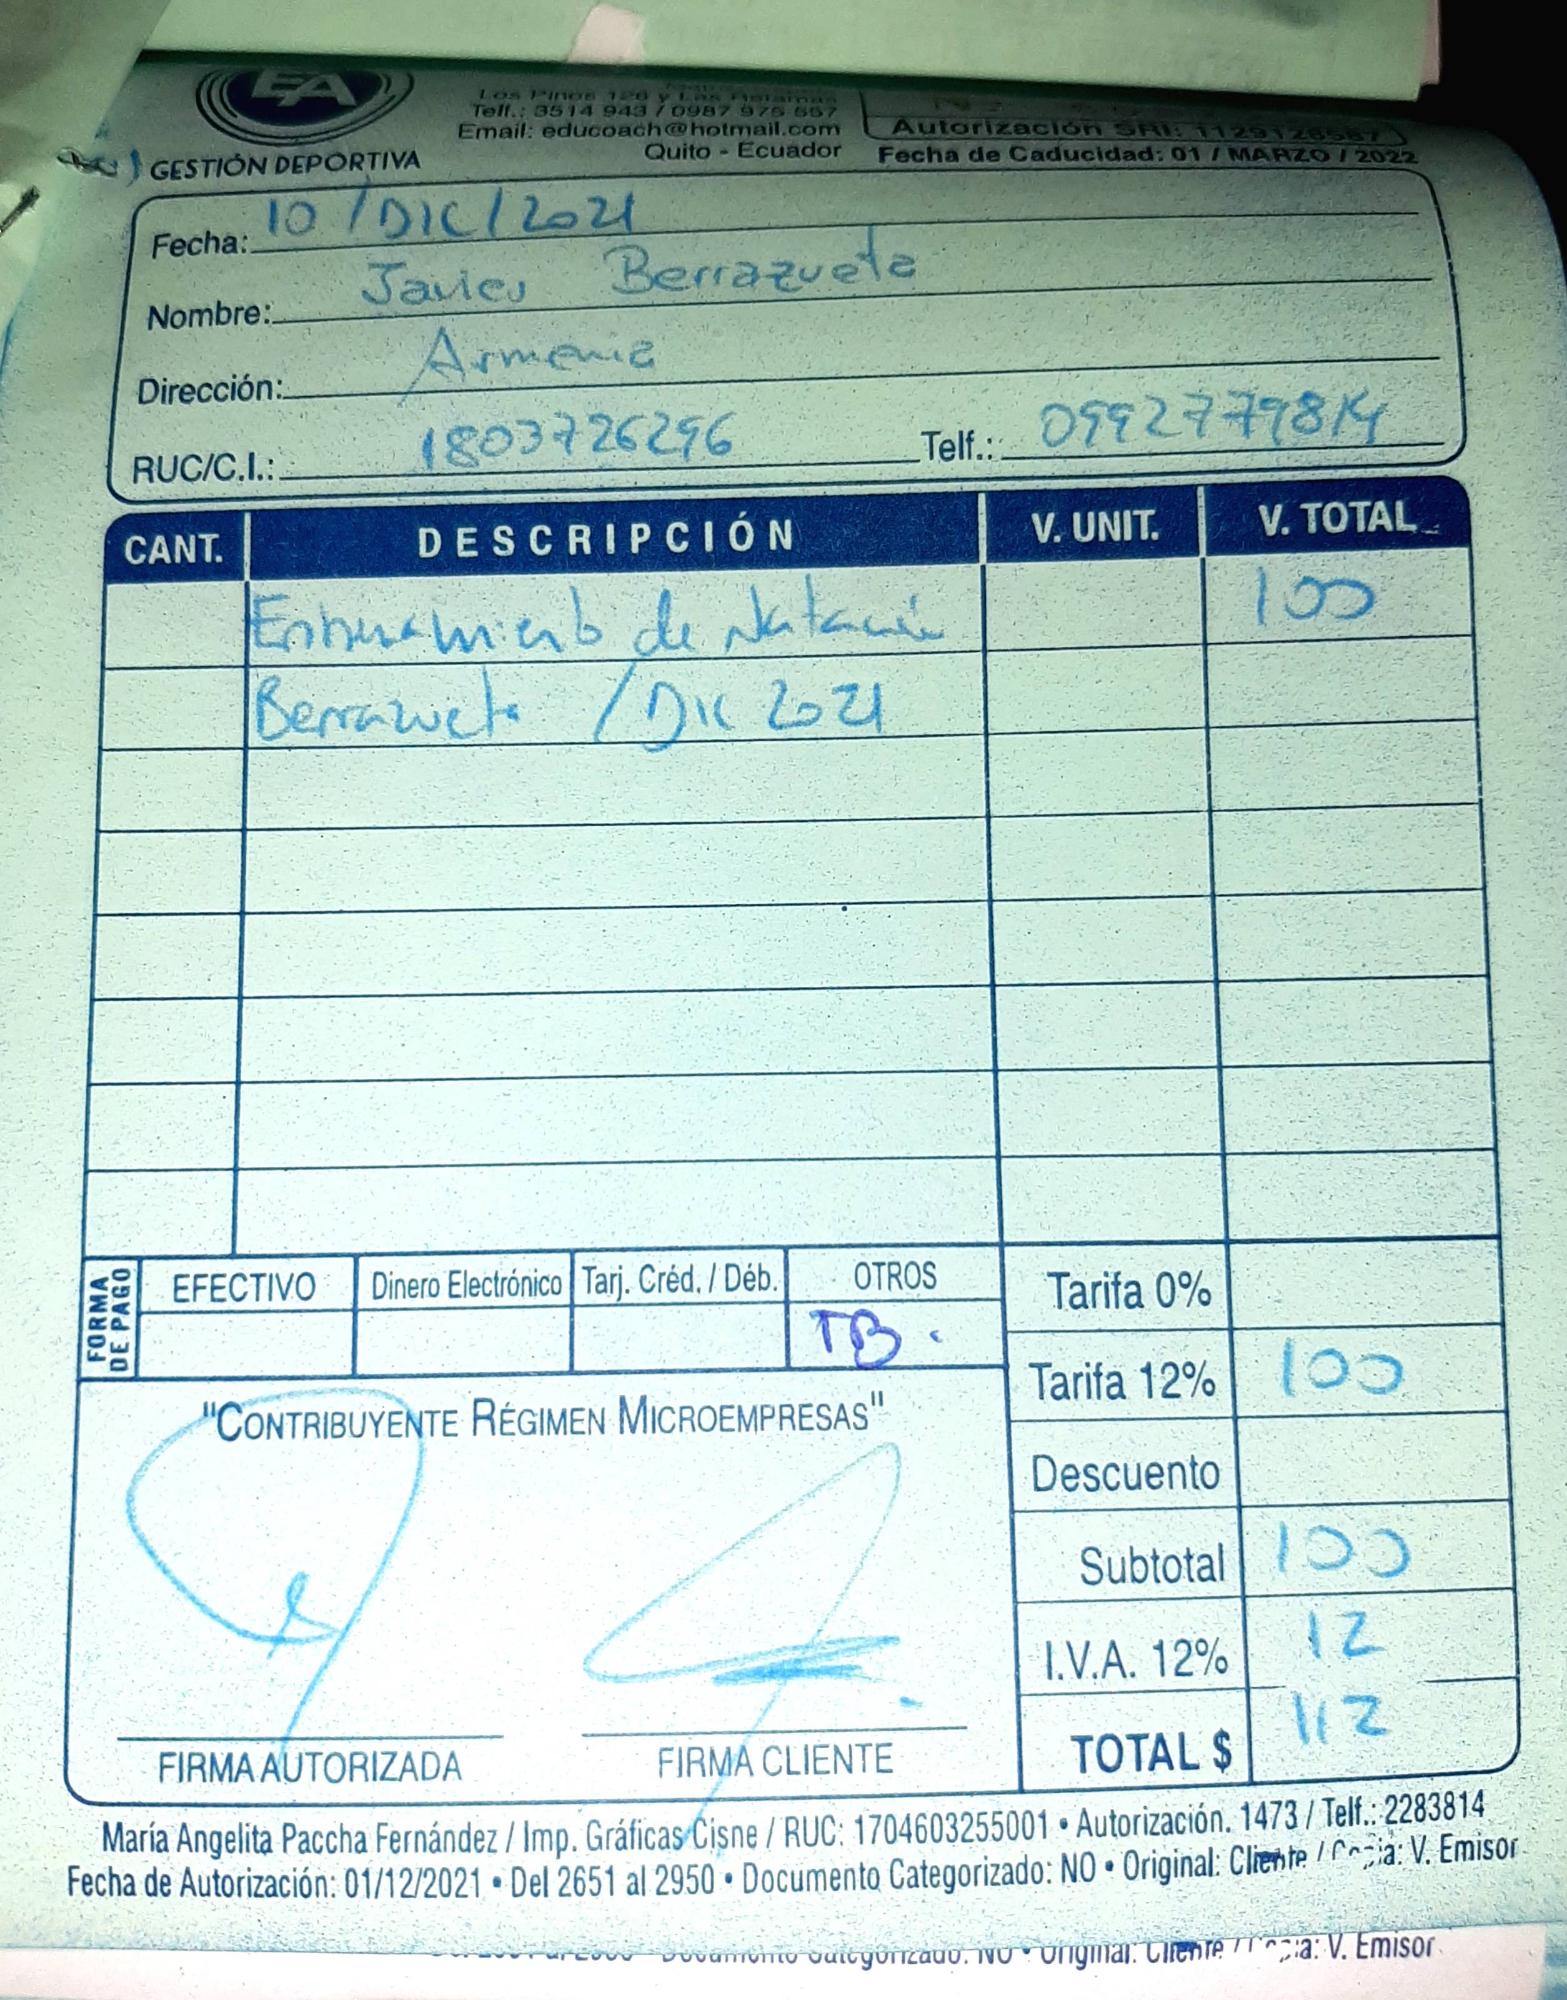 EA
Los Pinos 126 y Las
Telf.: 3514 943 / 0987 976 667
Email: educoach@hotmail.com
Quito - Ecuador
GESTIÓN DEPORTIVA
Autorización SRI: 1129128587
Fecha de Caducidad: 01 / MARZO / 2022
Fecha: 10 / DIC / 2021
Nombre: Javier Berrazueta
Dirección: Armenia
RUC/C.I.: 1803726296 Telf.: 0992779814
CANT. DESCRIPCIÓN V. UNIT. V. TOTAL
Entrenamiento de Natación 100
Berrazueta / Dic 2021
FORMA DE PAGO
EFECTIVO Dinero Electrónico Tarj. Créd. / Déb. OTROS
TB.
Tarifa 0%
Tarifa 12% 100
Descuento
Subtotal 100
I.V.A. 12% 12
TOTAL $ 112
"CONTRIBUYENTE RÉGIMEN MICROEMPRESAS"
FIRMA AUTORIZADA FIRMA CLIENTE
María Angelita Paccha Fernández / Imp. Gráficas Cisne / RUC: 1704603255001 • Autorización. 1473 / Telf.: 2283814
Fecha de Autorización: 01/12/2021 • Del 2651 al 2950 • Documento Categorizado: NO • Original: Cliente / Copia: V. Emisor
Documento Categorizado: NO • Original: Cliente / Copia: V. Emisor